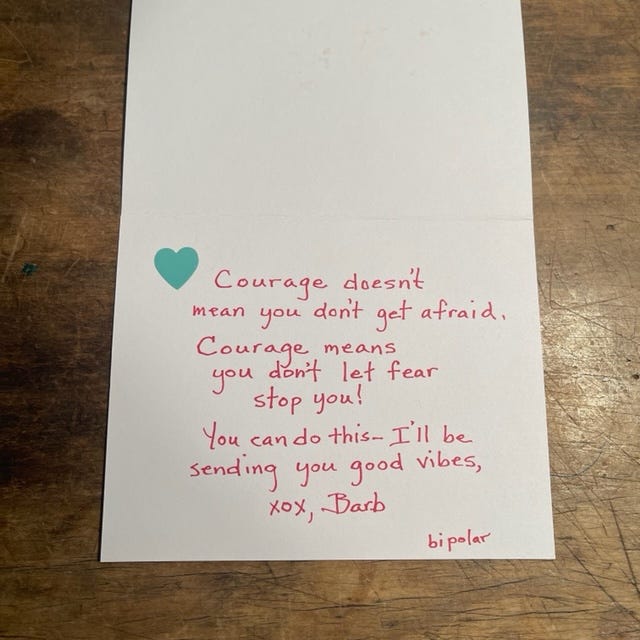 Courage doesn't
mean you don't get afraid.
Courage means
you don't let fear
stop you!
You can do this– I'll be
sending you good vibes,
xox, Barb
bipolar